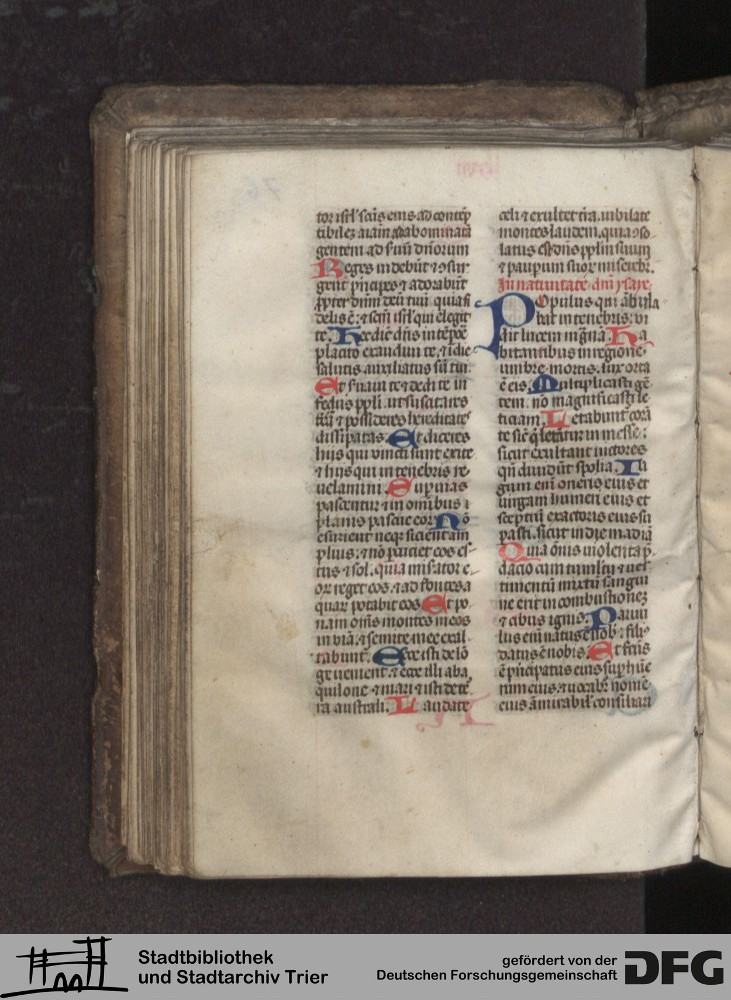 tor isrl' scūs eius ad contēp
tibilez aīam ad abominatā
gentem ad ẜuū dn̄orum
Reges uidebūt ⁊ ꝯsur
gent p̄ncipes ⁊ adorabūt
ꝓpter dnm̄ deū tuū quia fi
delis ē: ⁊ scm̄ isrl' qui elegit
te. Hec dic̄ dn̄s in tēpoe
placito exaudiui te, ⁊ ī die
salutis auxiliatus sū tui.
Et ẜuaui te ⁊ dedi te in
fedus ppl'i. ut suscitares
tr̄ā ⁊ possideres hereditates
dissipatas. Et diceres
hiis qui uincti sunt exite
⁊ hiis qui in tenebris re
uelamini. Sup uias
pascentur ⁊ in om̄ibus
planis pascue eor̄ Nō
esurient neqꝫ sicient am
plius. ⁊ nō p̄cuciet eos es
tus ⁊ sol. quia misator e
or̄ reget eos. ⁊ ad fontes a
quar̄ potabit eos Et po
nam om̄s montes meos
in uiā. ⁊ semite mee exal
tabunt̄. Ecce isti de lō
ge uenient. ⁊ ecce illi ab a
quilone ⁊ mari ⁊ isti de t̄e
ra australi. Laudate
celi ⁊ exultet t̄ra. iubilate
montes laudem. quia ꝯso
latus est dn̄s pplm̄ suum
⁊ paupum suor̄ miserebr̄.
In natiuitate dn̄i ysaye
Populus qui ābula
bat in tenebris: ui
dit lucem magnā. Ha
bitantibus in regione
umbre mortis. lux orta
ē eis. Multiplicasti gē
tem. nō magnificasti le
ticiam. Letabunt̄ corā
te sic̄ q̄ letātur in messe:
sicut exultant uictores
qn̄ diuidūt spolia. Iu
gum enī oneris eius et
uirgam humeri eius et
sceptrū exactoris eius su
pasti. sicut in die madiā
Quia ōnis uiolenta p̄
dacio cum tumultu ⁊ ues
timentū mixtū sangui
ne erit in combustionez
⁊ cibus ignis. Paruu
lus enī natus ē nob̄. fili
datus ē nobis. Et f̄cūs
ē p̄ncipatus eius sup hūe
rum eius. ⁊ uocabr̄ nomē
eius āmirabil' consiliari
Stadtbibliothek
und Stadtarchiv Trier
gefördert von der
Deutschen Forschungsgemeinschaft
DFG